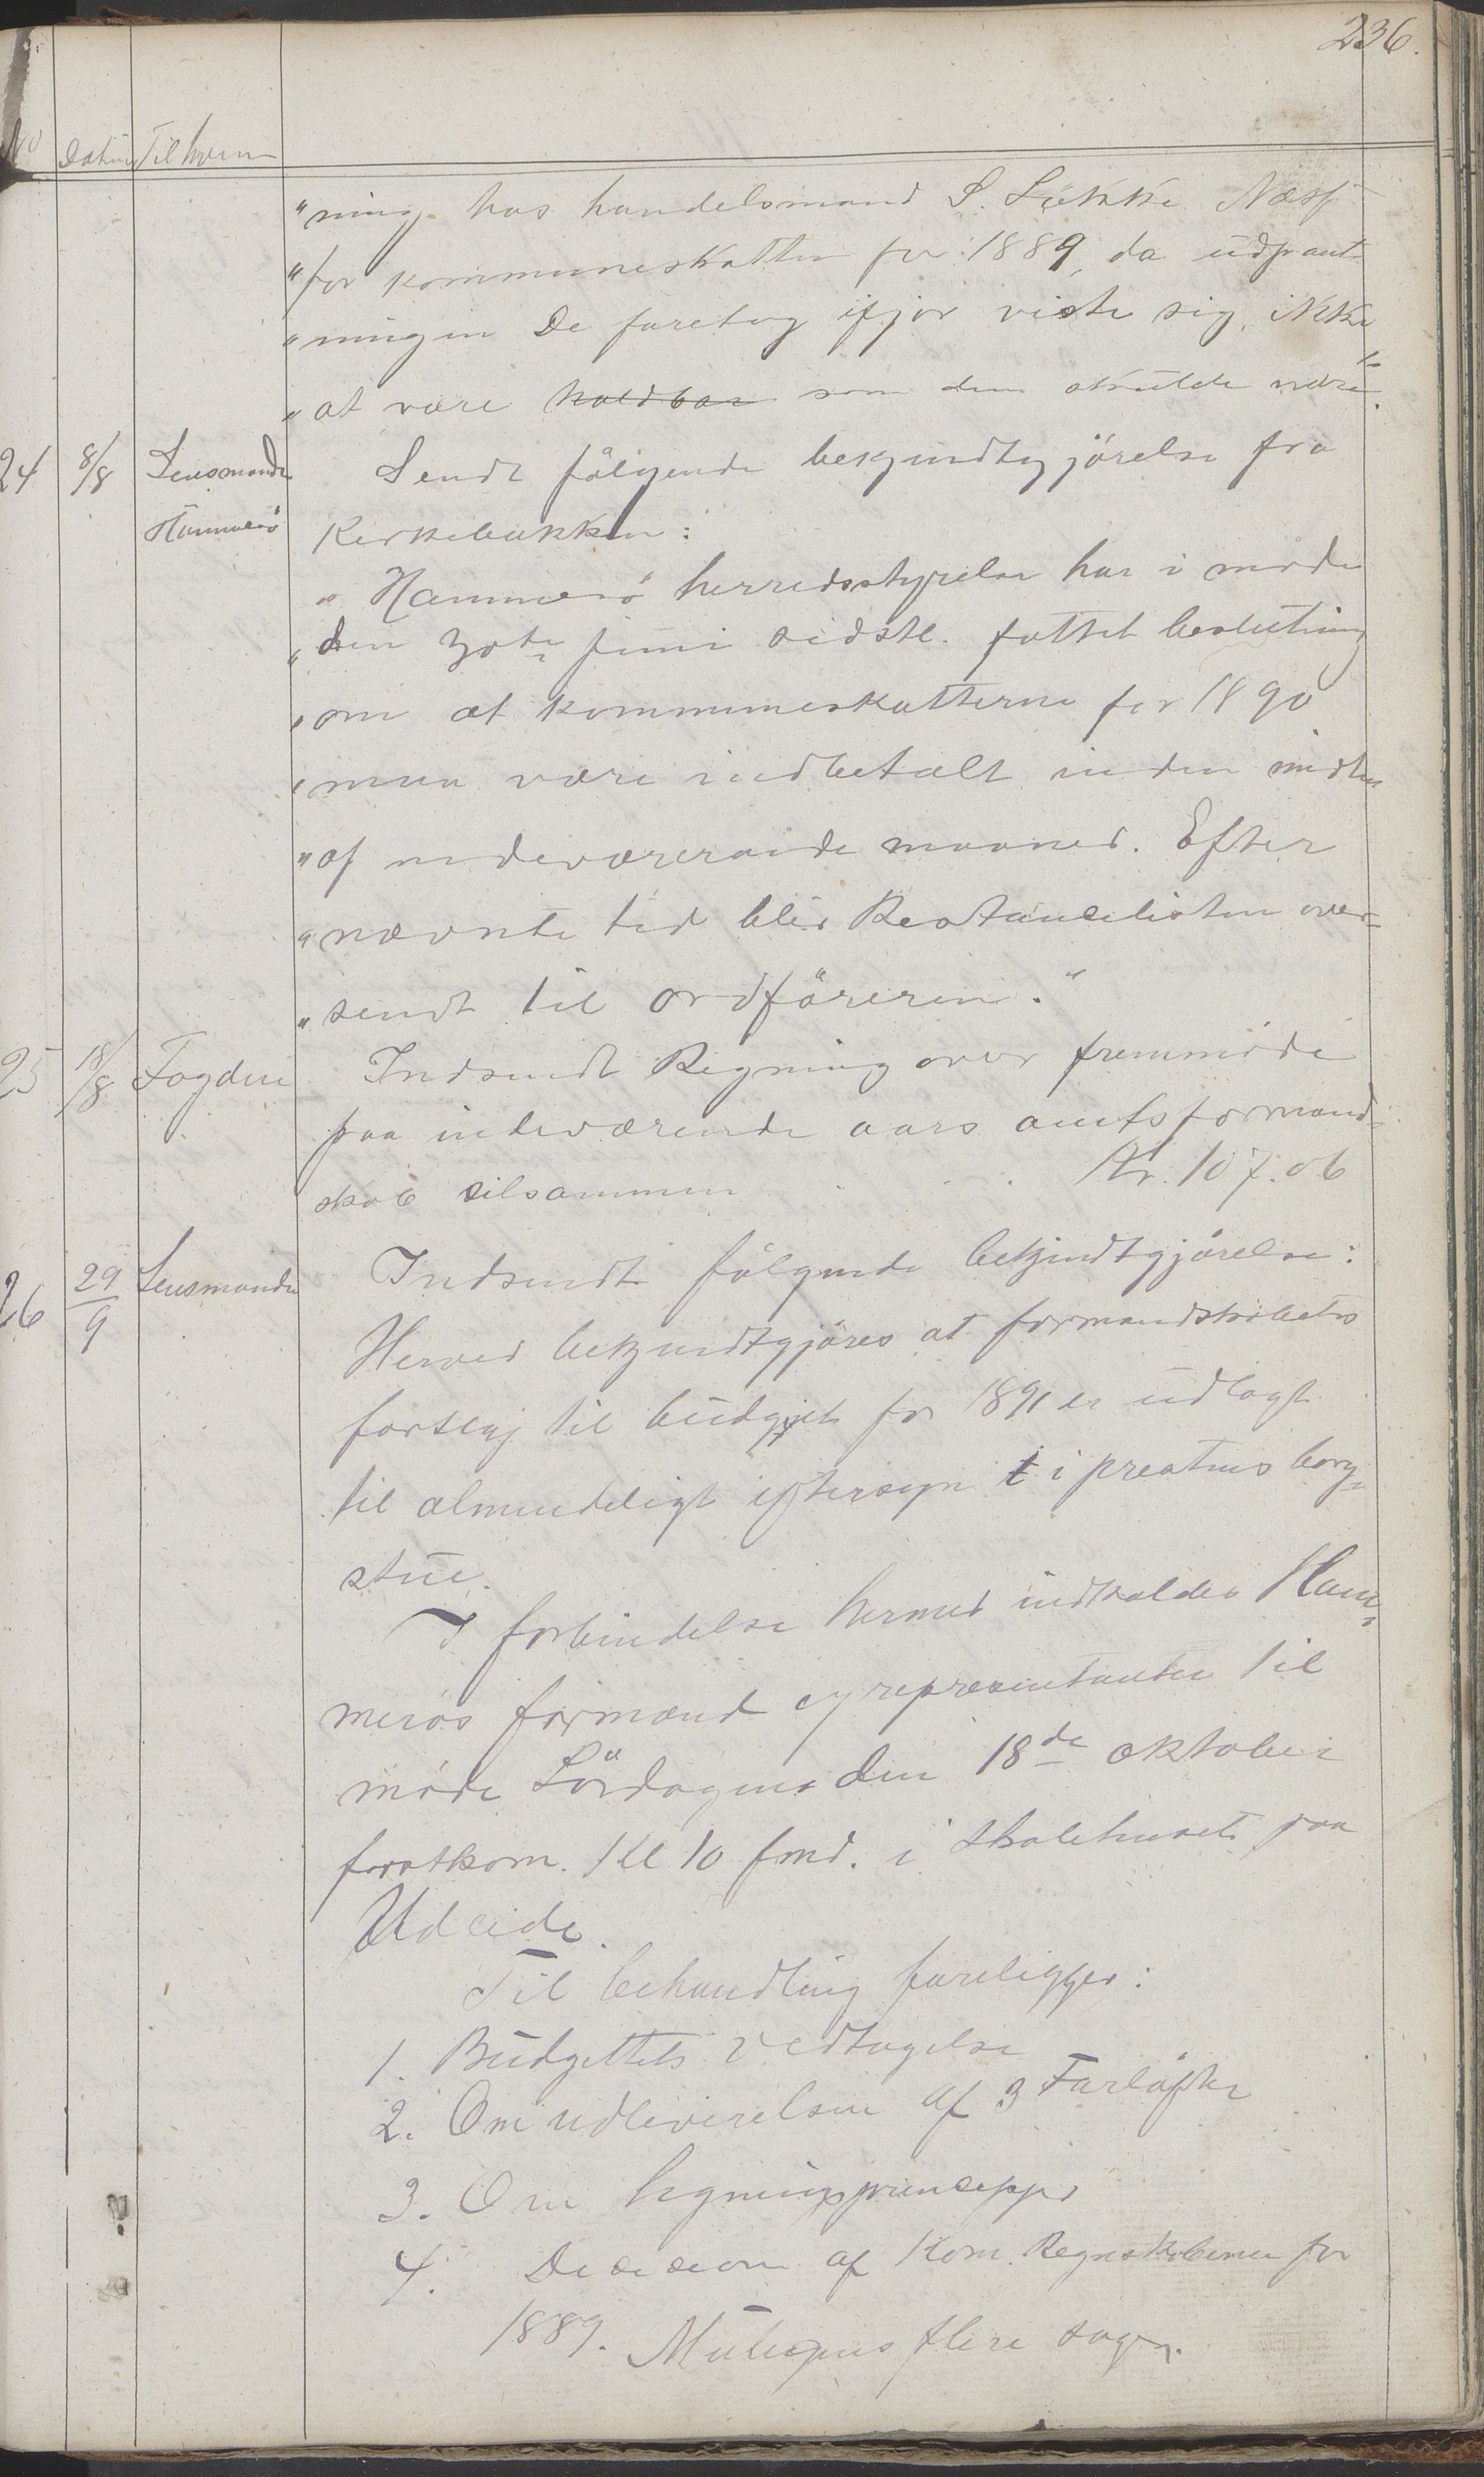 236.
No Datum Til hvem
"ning hos handelsmand S. Lükke Næss
"for kommuneskatten for 1889, da udpant
"ningen De foretog ifjor viste sig, ikke
"at være holdbar som den skulde være."
24 8/8 Lensmanden Sendt følgende bekjendtgjörelse fra
Hammerö Kirkebakken:
"Hammerö herredsstyrelse har i møde
"den 30te juni sidstl. fattet beslutning
"om at kommuneskatterne for 1890
"maa være indbetalt inden midten
"af indeværerende maaned. Efter
"nævnte tid blir Restancelisten over-
"sendt til ordföreren."
25 18/8 Fogden Indsendt Regning over fremmöde
paa indeværende aars amtsformand-
skab tilsammen . . . Kr. 107.06
26 29/9 Lensmanden Indsendt fölgende bekjendtgjörelse:
Herved bekjendtgjöres at formandskabets
forslag til büdget for 1891 er üdlagt
til almindeligt eftersyn i præstens borg-
stüe.
I forbindelse hermed indkaldes Ham-
merös formænd og repræsentanter til
möde Lördagen den 18de oktober
førstkom. Kl 10 fmd. i skolehuset paa
Uteide.
Til behandling foreligger:
1. Büdgettets vedtagelse
2. Om udleverelsen af 3 Farløfter
3. Om ligningsprincipper
4. Decision af Kom. Regnskaberne for
1889. Muligens flere sager.